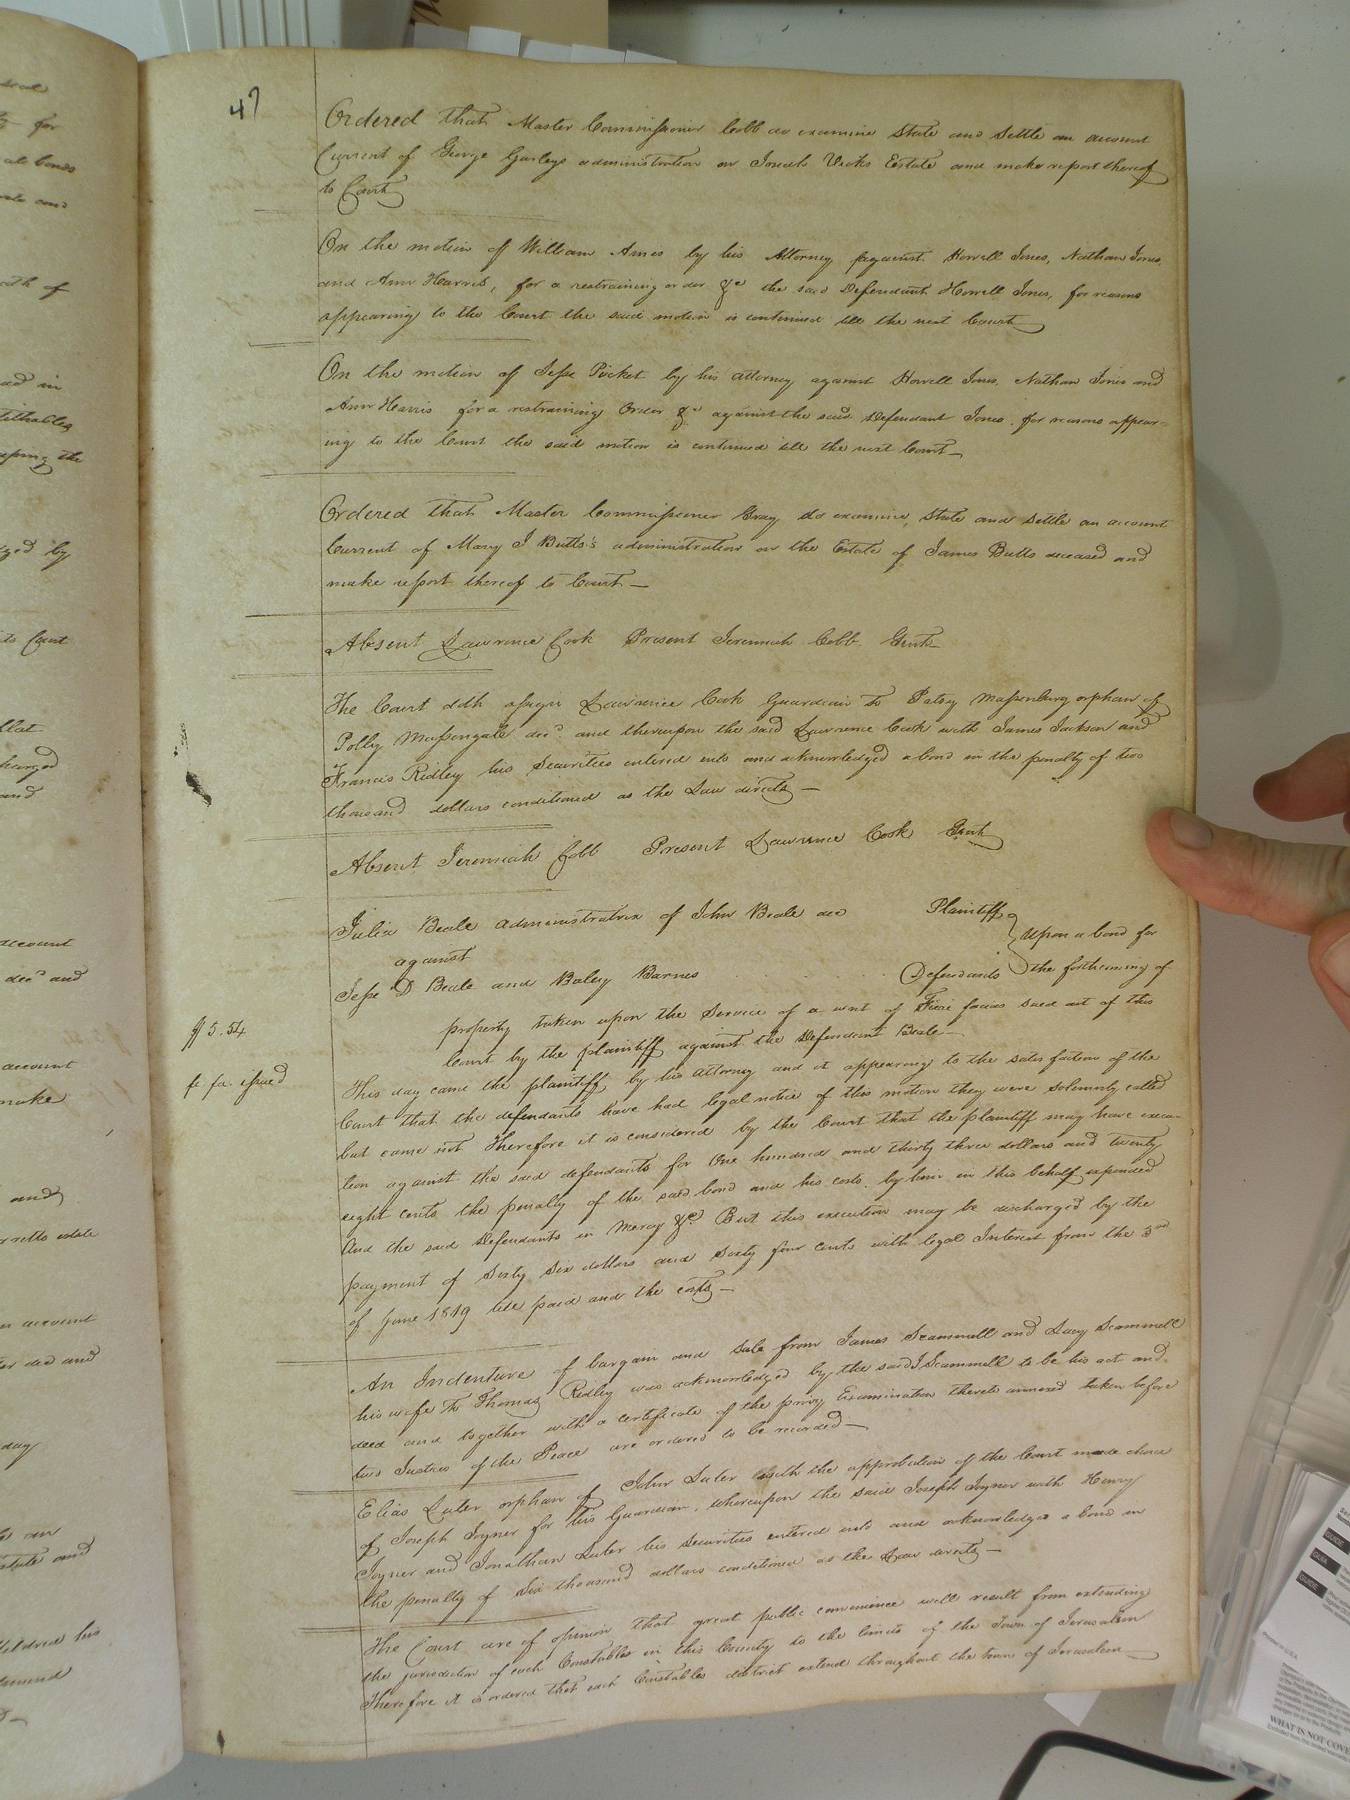 47
Ordered that Master Commissioner Cobb do examine State and Settle an account
Current of George Gurleys administration on Josiah Vicks Estate and make report thereof
to Court
On the motion of William Ames by his Attorney against Howell Jones, Nathan Jones
and Ann Harris, for a restraining order &c the said Defendant Howell Jones, for reasons
appearing to the Court the said motion is continued till the next Court
On the motion of Jesse Pucket by his attorney against Howell Jones, Nathan Jones and
Ann Harris for a restraining Order &c against the said Defendant Jones. for reasons appear-
ing to the Court the said motion is continued till the next Court—
Ordered that Master Commissioner Gray do examine, State and Settle an account
Current of Mary J Butts's administration on the Estate of James Butts deceased and
make report thereof to Court—
Absent Lawrence Cook Present Jeremiah Cobb Gent
The Court doth assign Lawrence Cook Guardian to Patsy Massenburg orphan of
Polly Massengale decd and thereupon the said Lawrence Cook with James Jackson and
Francis Ridley his Securities entered into and acknowledged a bond in the penalty of two
thousand dollars conditioned as the Law directs—
Absent Jeremiah Cobb Present Lawrence Cook Gent
Julia Beale administratrix of John Beale dec Plaintiff
against Upon a bond for
Jesse D Beale and Boley Barnes Defendants the forthcoming of
property taken upon the Service of a writ of Fieri facias sued out of this
Court by the plaintiff against the Defendant Beale—
$5.54
fi fa. issued
This day came the plaintiff by his attorney and it appearing to the satisfaction of the
Court that the defendants have had legal notice of this motion they were solemnly called
but came not Therefore it is considered by the Court that the plaintiff may have execu-
tion against the said defendants for One hundred and thirty three dollars and twenty
eight cents the penalty of the said bond and his costs by him in this behalf expended
And the said Defendants in Mercy &c But this execution may be discharged by the
payment of Sixty Six dollars and Sixty four cents with legal Interest from the 3rd
of June 1819 till paid and the costs—
An Indenture of bargain and Sale from James Scammell and Lucy Scammell
his wife To Thomas Ridley was acknowledged by the said J Scammell to be his act and
deed and together with a certificate of the privy Examination thereto annexed taken before
two Justices of the Peace are ordered to be recorded—
Elias Luter orphan of John Luter with the approbation of the Court made choice
of Joseph Joyner for his Guardian, whereupon the said Joseph Joyner with Henry
Joyner and Jonathan Luter his Securities entered into and acknowledged a bond in
the penalty of Six thousand dollars conditioned as the Law directs—
The Court are of opinion that great public convenience will result from extending
the jurisdiction of each Constable in this County to the limits of the Town of Jerusalem
Therefore it is ordered that each Constables district extend throughout the town of Jerusalem—
WHAT IS NOT COVE